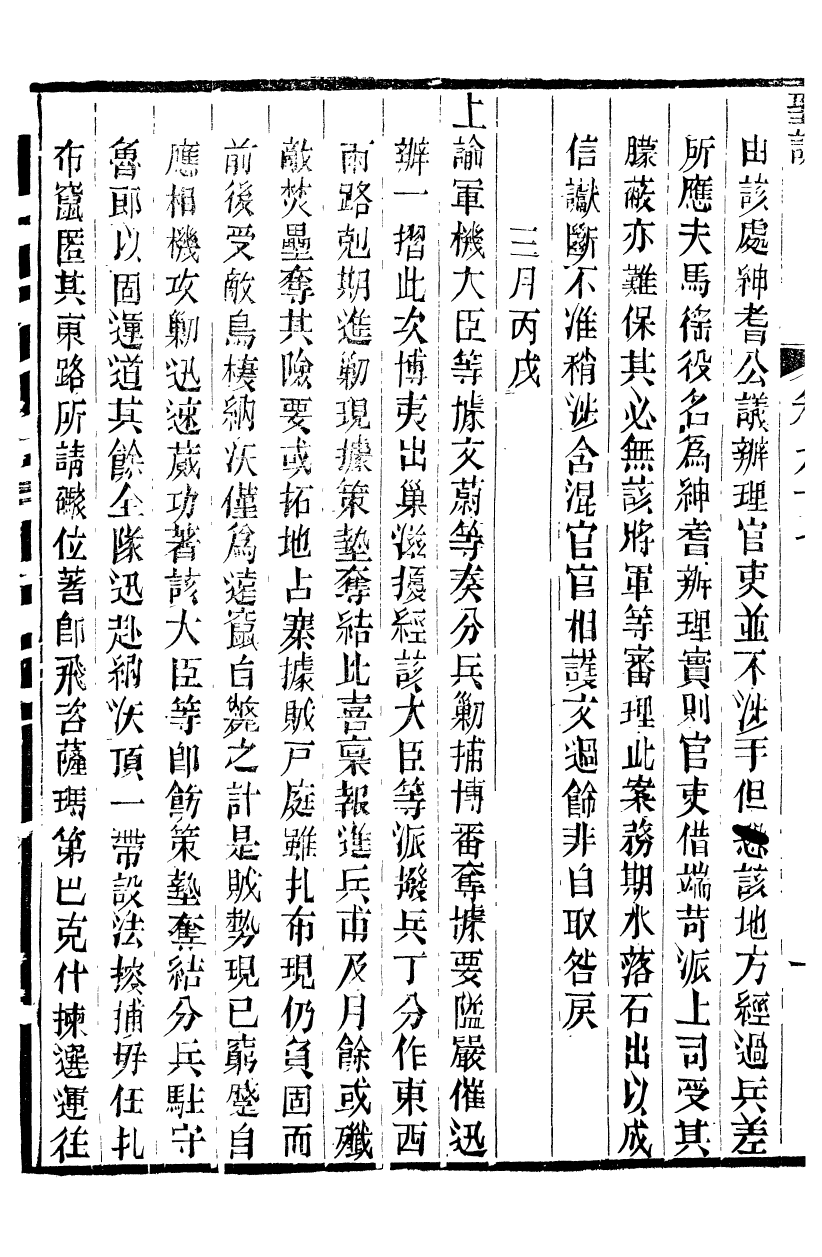 由該處紳耆公議辦理官吏並不涉手但恐該地方經過兵差
所應夫馬徭役名為紳耆辦理實則官吏借端苛派上司受其
朦蔽亦難保其必無該將軍等審理此案務期水落石出以成
信讞斷不准稍涉含混官官相護文過餙非自取咎戾
三月丙戌
上諭軍機大臣等據文蔚等奏分兵勦捕博番奪據要隘嚴催迅
辦一摺此次博夷出巢滋擾經該大臣等派撥兵丁分作東西
兩路剋期進勦現據策墊奪結比喜稟報進兵甫及月餘或殲
敵焚壘奪其險要或拓地占寨據賊戸庭雖扎布現仍負固而
前後受敵鳥棲納沃僅為遠竄自斃之計是賊勢現已窮蹙自
應相機攻勦迅速蕆功著該大臣等即飭策墊奪結分兵駐守
魯郎以固運道其餘全隊迅赴納沃頂一帶設法擒捕毋任扎
布竄匿其東路所請礮位著即飛咨薩瑪第巴克什揀選運往